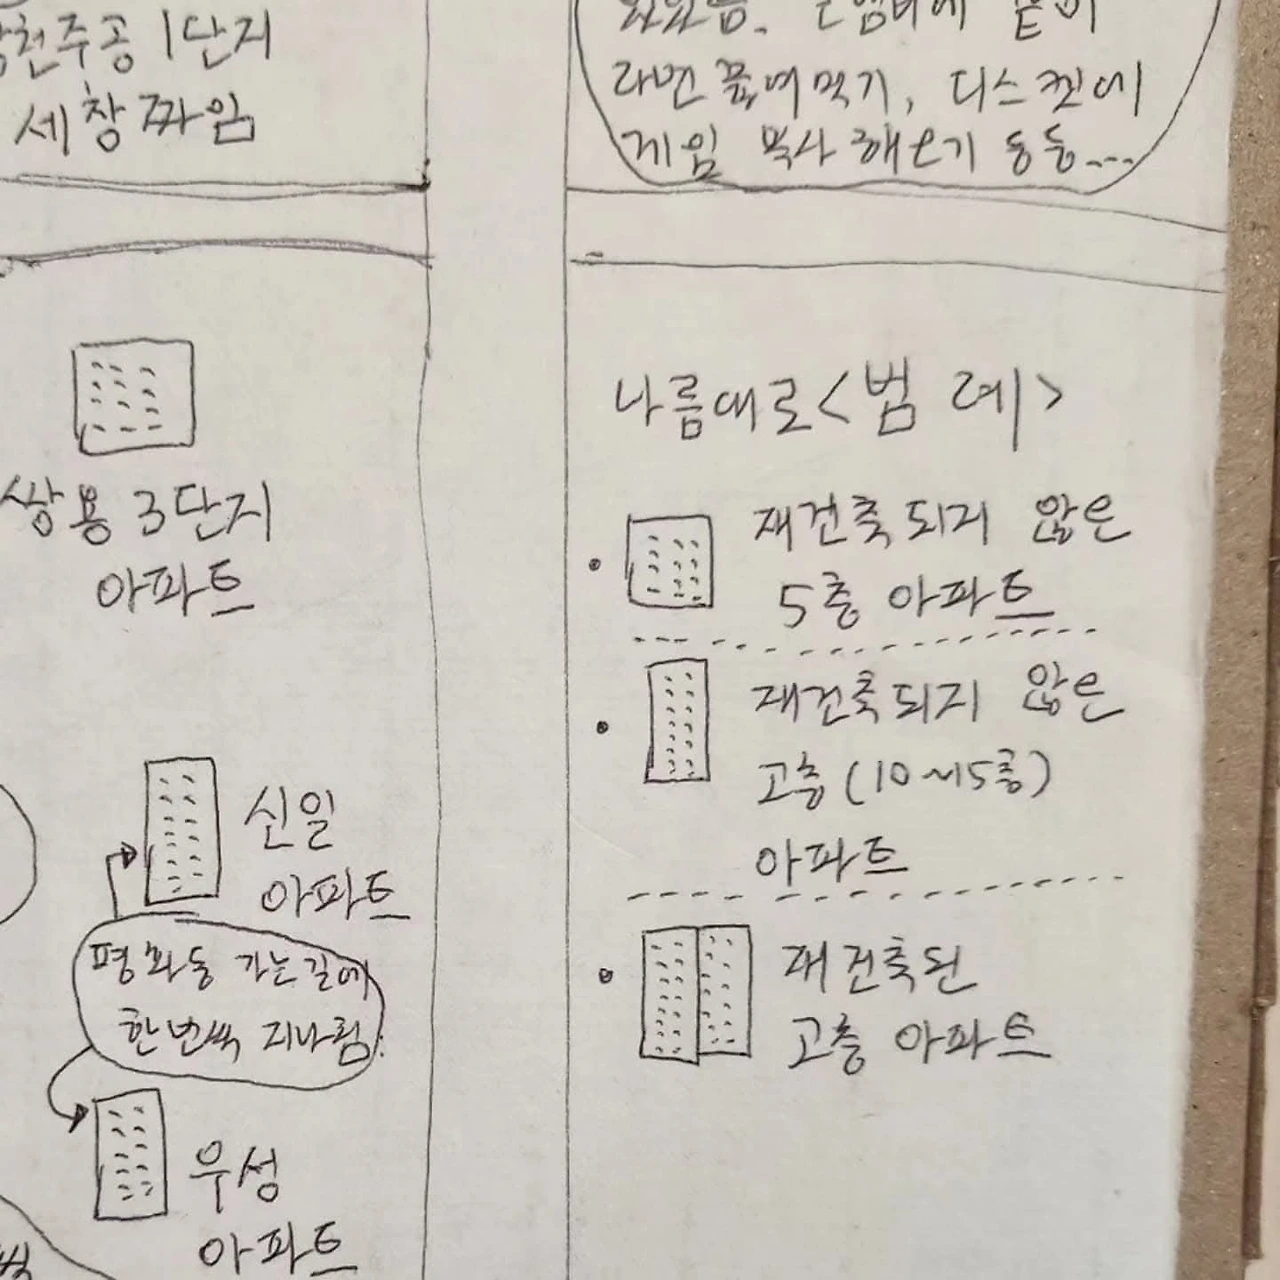 주공 1단지
세창짜임
라면 끓여먹기, 디스켓에
게임 복사 해오기 등등...
쌍용 3단지
아파트
신일
아파트
평화동 가는길에
한번씩 지나침.
우성
아파트
나름대로 <범 례>
재건축되지 않은
5층 아파트
재건축되지 않은
고층 (10~15층)
아파트
재건축된
고층 아파트